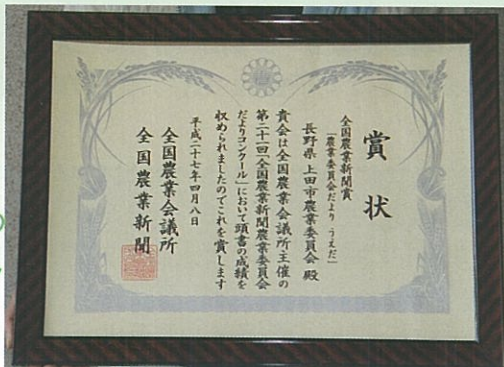 賞状
全国農業新聞賞
「農業委員会だより うえだ」
長野県 上田市農業委員会 殿
貴会は全国農業会議所主催の
第二十一回「全国農業新聞農業委員会
だよりコンクール」において頭書の成績を
収められましたのでこれを賞します
平成二十七年四月八日
全国農業会議所
全国農業新聞